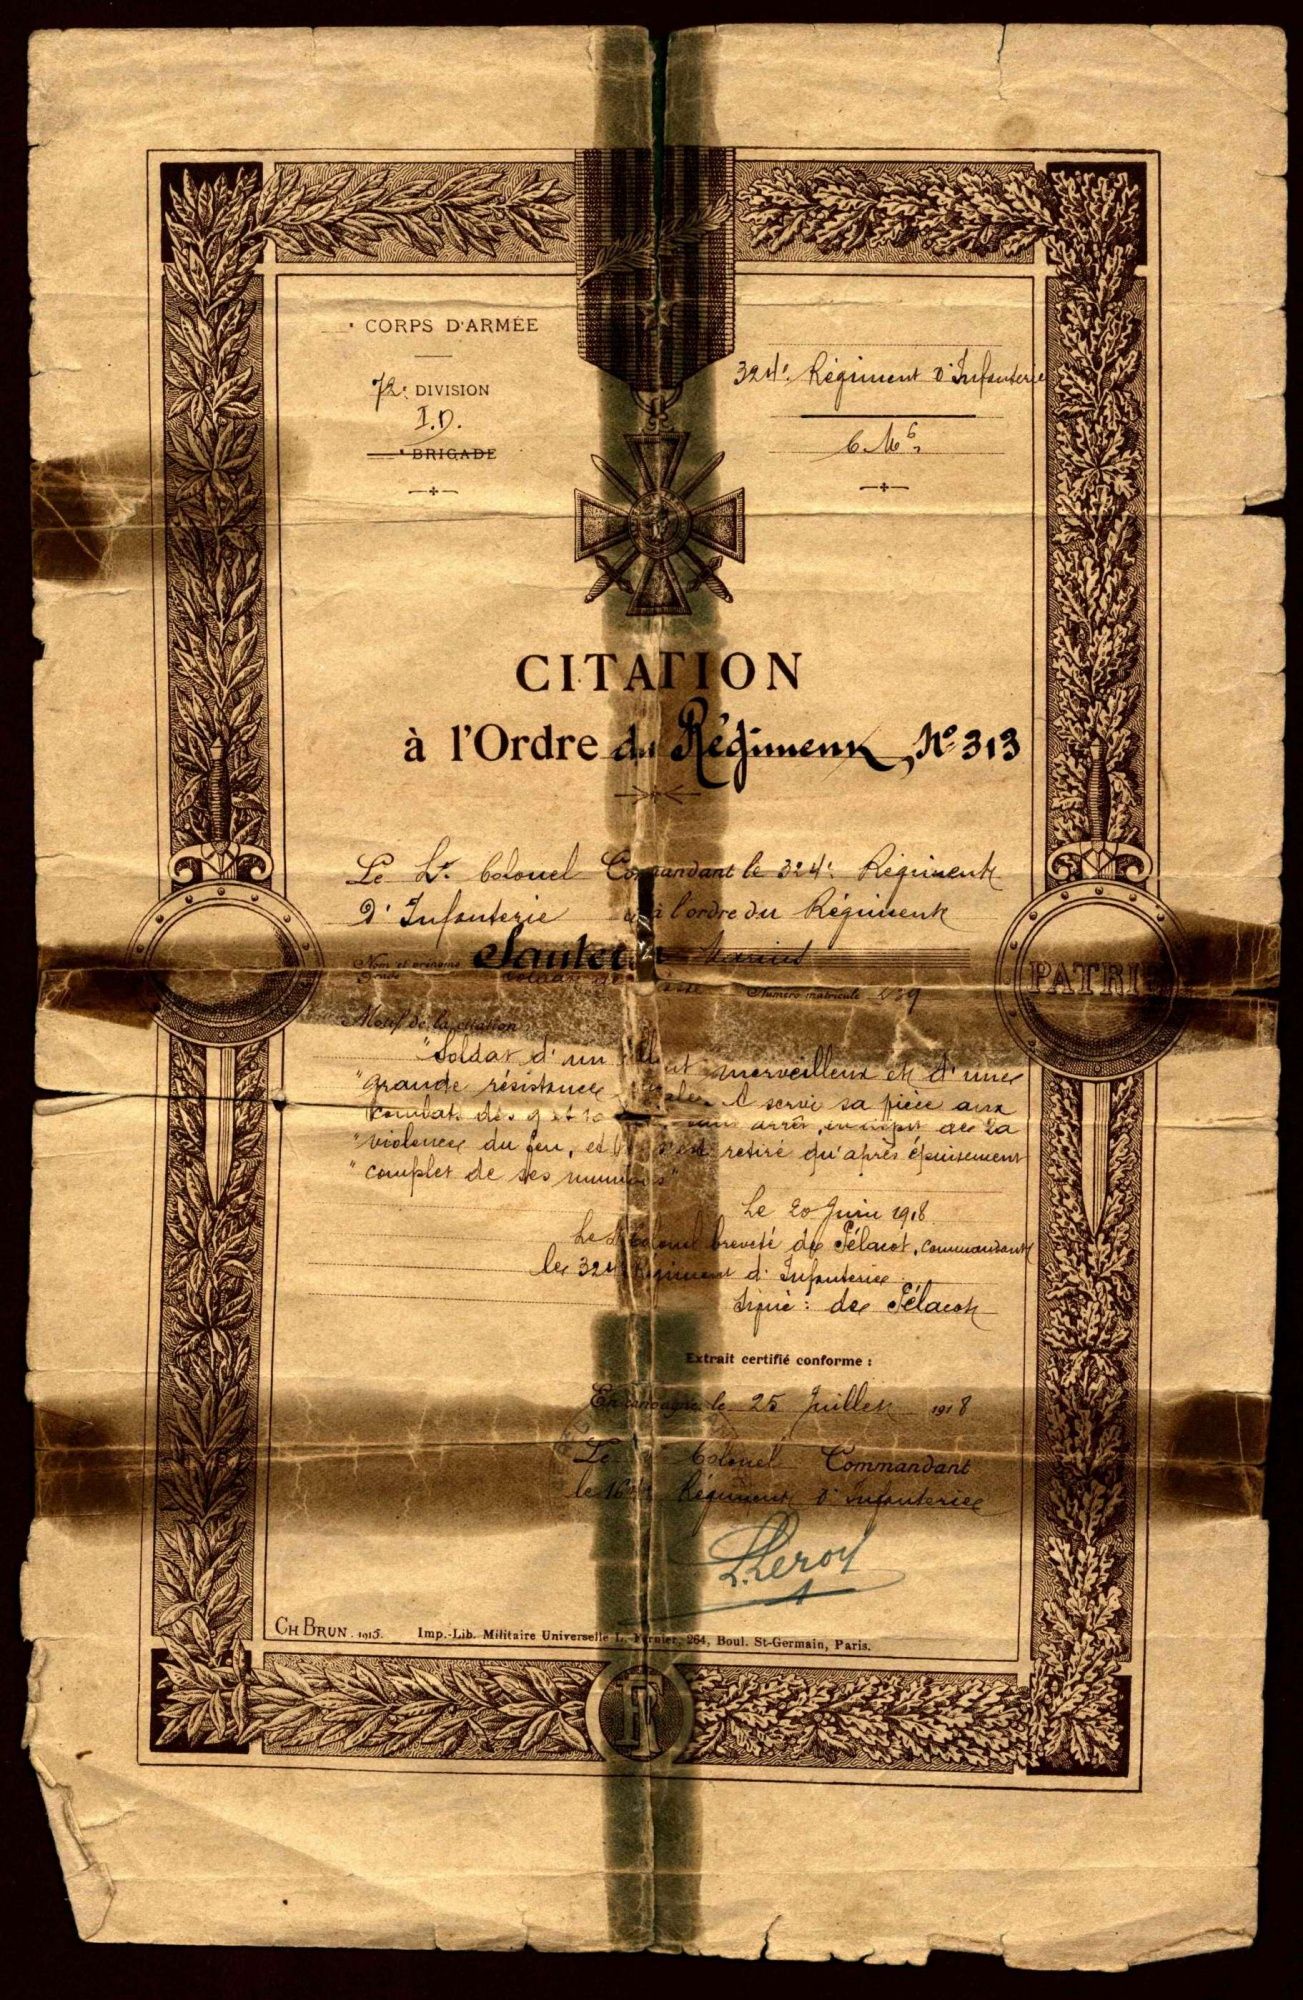 CORPS D'ARMÉE
72e DIVISION
I.D.
BRIGADE
324e Régiment d'Infanterie
CITATION
à l'Ordre du Régiment, No 313
Le Lt Colonel Commandant le 324e Régiment
d'Infanterie à l'ordre du Régiment
Nom et prénoms Marius
Grade Numéro matricule
Motif de la citation
"Soldat d'un merveilleux et d'une
"grande résistance servi sa pièce aux
combats des 9 et 10 sans arrêt, en dépit de la
"violence du feu, et ne s'est retiré qu'après épuisement
"complet de ses munitions"
Le 20 Juin 1918
Le Lt Colonel breveté de Pélacot, commandant
le 324e Régiment d'Infanterie
Signé : de Pélacot
Extrait certifié conforme :
En campagne le 25 Juillet 1918
Le Colonel Commandant
le Régiment d'Infanterie
L. Leroy
CH BRUN. 1915. Imp.-Lib. Militaire Universelle L. Fournier, 264, Boul. St-Germain, Paris.
PATRIE
RF